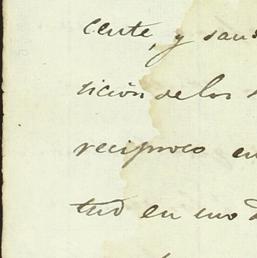 cente, y san
sición de los
reciproco en
tud en uno d